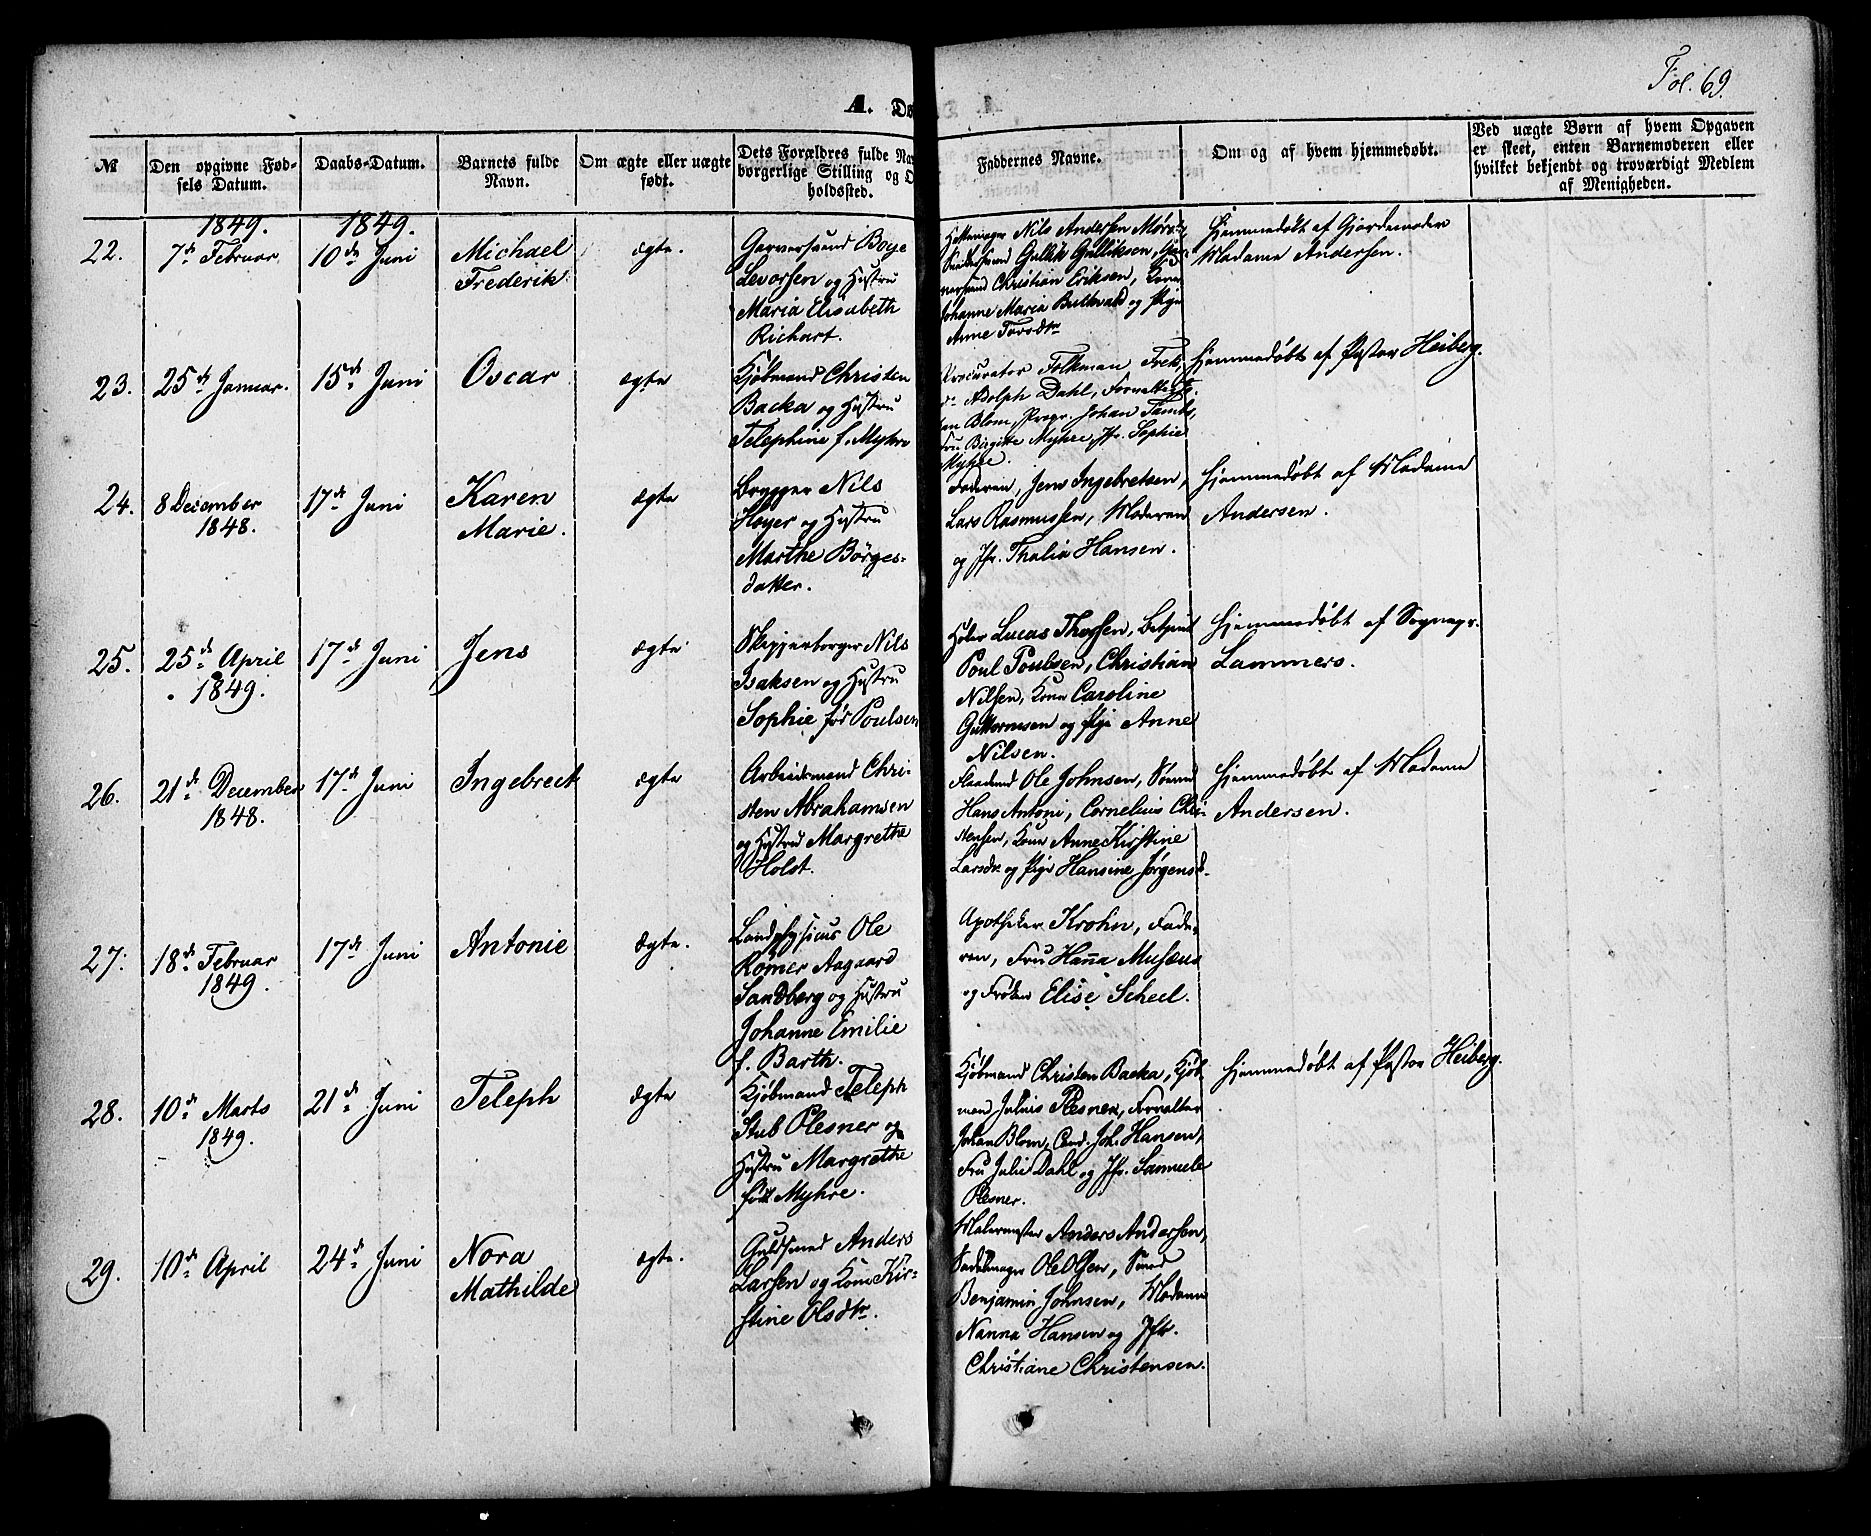 Fol. 69.
A. Dø
№
Den opgivne Fød-
sels Datum.
Daabs-Datum.
Barnets fulde
Navn.
Om ægte eller uægte
født.
Dets Forældres fulde Nav
borgerlige Stilling og O
holdssted.
Faddernes Navne.
Om og af hvem hjemmedøbt.
Ved uægte Børn af hvem Opgaven
er skeet, enten Barnemoderen eller
hvilket bekjendt og troværdigt Medlem
af Menigheden.
1849.
1849.
22.
7de Februar
10de Juni
Michael
Frederik
ægte.
Garversvend Boye
Levorsen og Hustru
Maria Elisabeth
Richart.
Nils Andersen
Gullik Gulliksen,
Christian Eriksen, Kone
Johanne Maria Buthvald og Pige
Anne Torsdtr
Hjemmedøbt af Gjordemoder
Madame Andersen.
23.
25de Januar.
15de Juni
Oscar
ægte
Kjøbmand Christen
Backa og Hustru
Telephine f. Myhre
Procurator Folkman, Frek.
Adolph Dahl, Forvalter
Blom, Johan
Fru Birgitte Myhre, Jfr. Sophie
Myhre.
Hjemmedøbt af Pastor Heiberg.
24.
8 December
1848.
17de Juni
Karen
Marie.
ægte
Brygger Nils
Høyer og Hustru
Marthe Börges-
datter.
Faderen, Jens Ingebretsen,
Lars Rasmussen, Moderen
og Jfr. Thalia Hansen.
Hjemmedøbt af Madame
Andersen.
25.
25de April
1849.
17de Juni
Jens
ægte
Skipperborger Nils
Isaksen og Hustru
Sophie før Poulsen
Lucas Thorsen, Betjent
Poul Poulsen, Christian
Nilsen, Kone Caroline
Guttormsen og Pige Anne
Nilsen.
Hjemmedøbt af Sognepr.
Lammers.
26.
21de December
1848.
17de Juni
Ingebreck
ægte
Arbeidsmand Chri-
sten Abrahamsen
og Hustru Margrethe
Holst.
Ole Johnsen, Sömand
Hans Antoni, Cornelius Chri-
stensen, Kone Anne Kirstine
Larsdr og Pige Hansine Jørgensd.
Hjemmedøbt af Madame
Andersen.
27.
18de Februar
1849.
17de Juni
Antonie
ægte.
Landphysicus Ole
Rømer Aagaard
Sandberg og Hustru
Johanne Emilie
f. Barth.
Apotheker Krohn, Fade-
ren, Fru Hanna Musæus
og Frøken Elise Scheel.
28.
10de Marts
1849.
21de Juni
Teleph
ægte
Kjøbmand Teleph
Stub Plesner og
Hustru Margrethe
født Myhre.
Kjøbmand Christen Backa, Kjøb-
mand Julius Plesner, Forvalter
Johan Blom, Cand. Joh. Hansen,
Fru Julie Dahl og Jfr. Samuele
Plesner.
Hjemmedøbt af Pastor Heiberg.
29.
10de April
24de Juni
Nora
Mathilde
ægte.
Guldsmed Anders
Larsen og Kone Kir-
stine Olsdtr.
Malermester Anders Andersen,
Sadelmager Ole Olsen, Smed
Benjamin Johnsen, Madame
Nanna Hansen og Jfr.
Christiane Christensen.